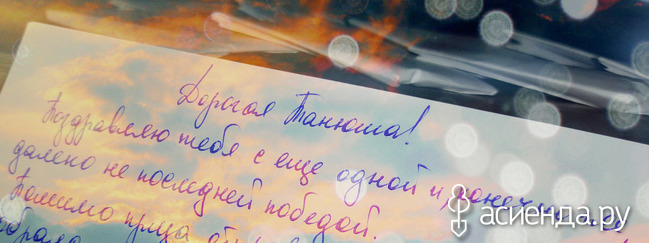 Дорогая Танюша!
Поздравляю тебя с еще одной и, конечно же,
далеко не последней победой.
Помимо приза
асиенда.ру